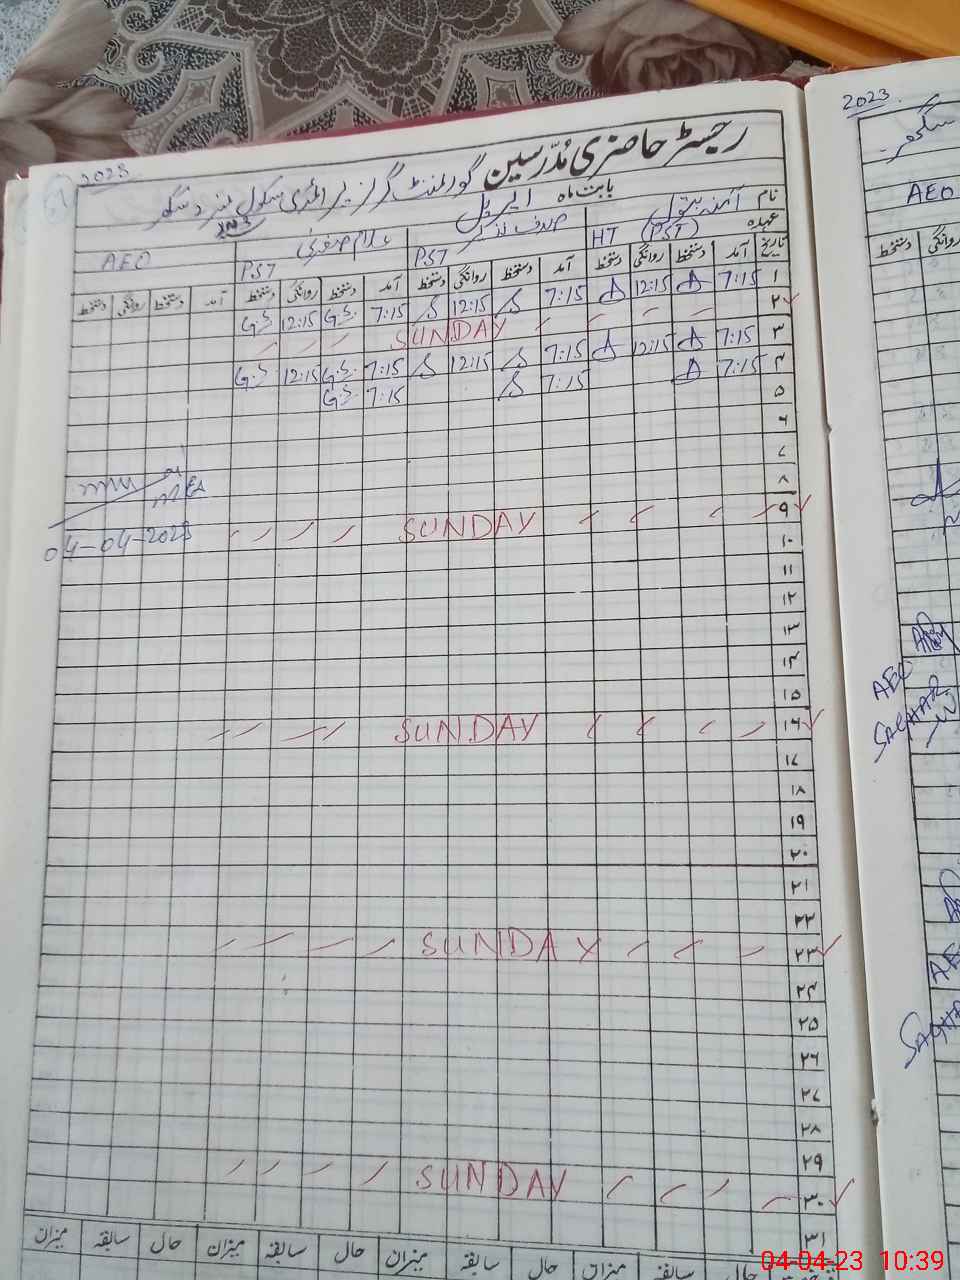 2023
رجسٹر حاضری مُدرّسین گورنمنٹ گرلز پرائمری سکول
بابت ماہ اپریل
نام آمنہ بتول صدف غلام صغریٰ
عہدہ HT (PST) PST PST AEO
تاریخ آمد دستخط روانگی دستخط آمد دستخط روانگی دستخط آمد دستخط روانگی دستخط آمد دستخط روانگی دستخط
۱ 7:15 A 12:15 A 7:15 S 12:15 S 7:15 G.S 12:15 G.S
۲ SUNDAY
۳ 7:15 A 12:15 A 7:15 S 12:15 S 7:15 G.S 12:15 G.S
۴ 7:15 A 7:15 S 7:15 G.S
۵
۶
۷
۸
۹ SUNDAY
۱۰
۱۱
۱۲
۱۳
۱۴
۱۵
۱۶ SUNDAY
۱۷
۱۸
۱۹
۲۰
۲۱
۲۲
۲۳ SUNDAY
۲۴
۲۵
۲۶
۲۷
۲۸
۲۹
۳۰ SUNDAY
۳۱
حال سابقہ میزان حال سابقہ میزان حال سابقہ میزان حال سابقہ میزان
MEA
04-04-2023
2023
AEO
دستخط روانگی
AEO
SAGHAR
04.04.23 10:39